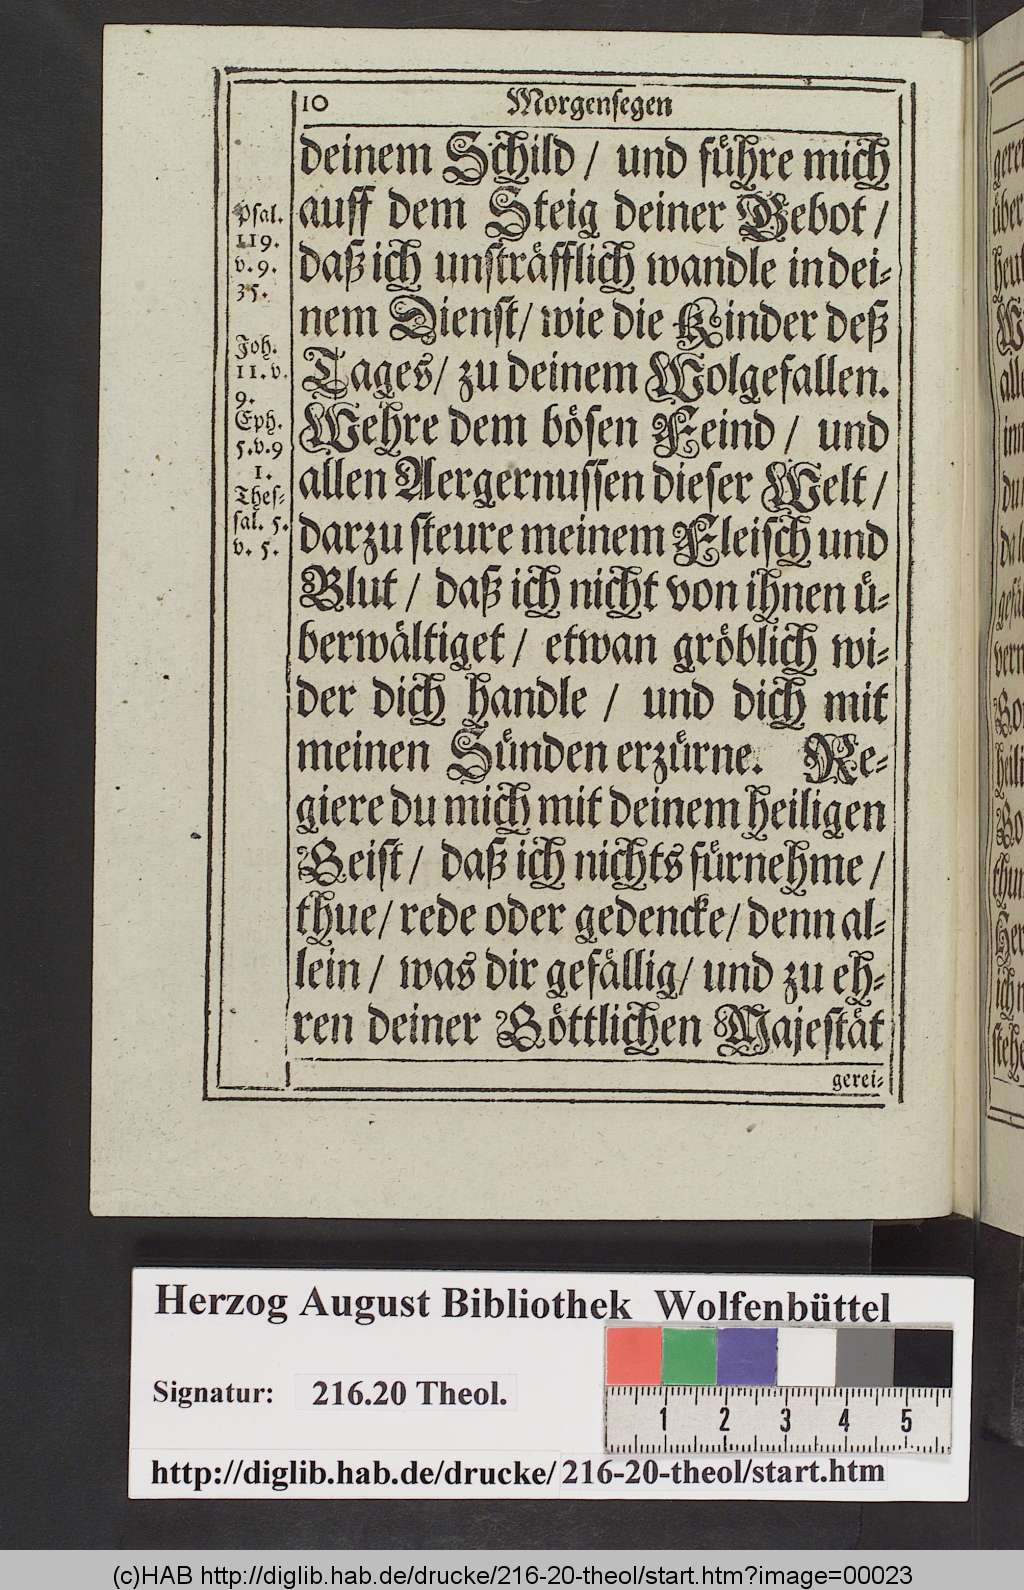 10 Morgensegen
deinem Schild / und führe mich
auff dem Steig deiner Gebot /
daß ich unsträfflich wandle in dei-
nem Dienst/ wie die Kinder deß
Tages/ zu deinem Wolgefallen.
Wehre dem bösen Feind / und
allen Aergernussen dieser Welt /
darzu steure meinem Fleisch und
Blut / daß ich nicht von ihnen ü-
berwältiget / etwan gröblich wi-
der dich handle / und dich mit
meinen Sünden erzürne. Re-
giere du mich mit deinem heiligen
Geist / daß ich nichts fürnehme /
thue/ rede oder gedencke/ denn al-
lein / was dir gefällig/ und zu eh-
ren deiner Göttlichen Majestät
gerei-
Psal.
119.
v. 9.
35.
Joh.
11. v.
9.
Eph.
5. v. 9
1.
Thes-
sal. 5.
v. 5.
Herzog August Bibliothek Wolfenbüttel
Signatur: 216.20 Theol.
1 2 3 4 5
http://diglib.hab.de/drucke/216-20-theol/start.htm
(c)HAB http://diglib.hab.de/drucke/216-20-theol/start.htm?image=00023